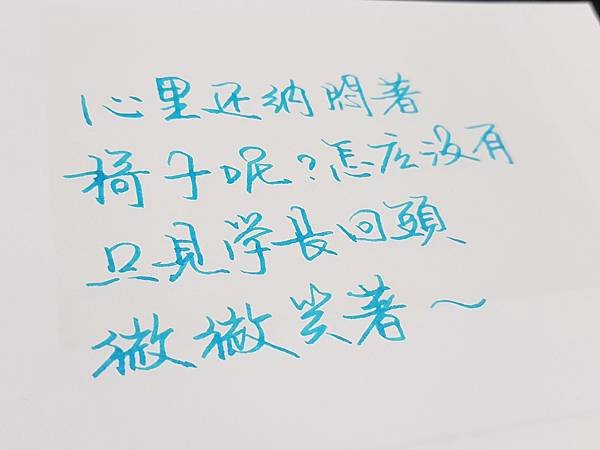 心里还納悶著
椅子呢?怎広没有
只見学長回頭
微微笑著~